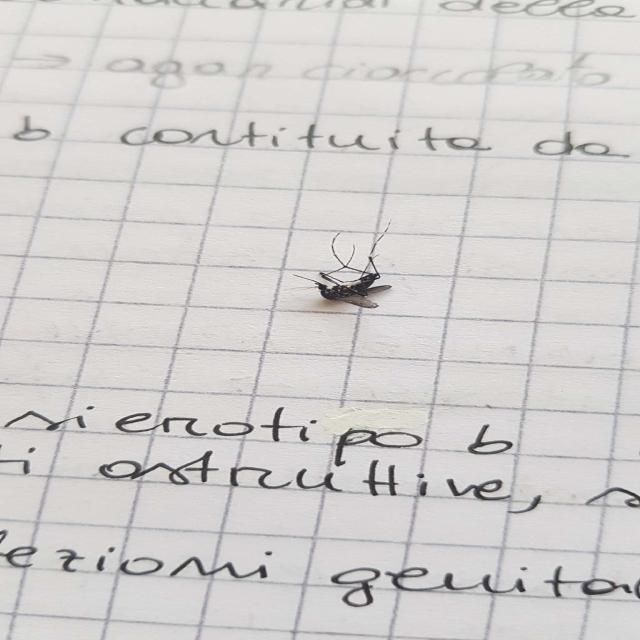 della
> agar cioccolato
b costituita da
sierotipo b
ti ostruttive, s
lezioni genita